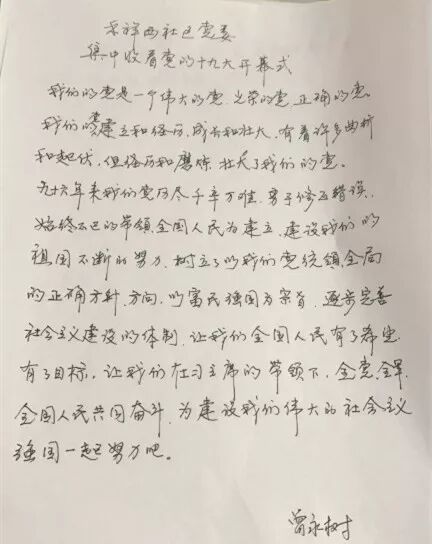 采祥西社区党委
集中收看党的十九大开幕式
我们的党是一个伟大的党、光荣的党、正确的党。
我们的党建立和经历,成长和壮大,有着许多曲折
和起伏,但经历和磨炼,壮大了我们的党。
九十六年来我们党历尽千辛万难,勇于修正错误,
始终不已的带领全国人民为建立、建设我们的
祖国不断的努力,树立了以我们党统领全局
的正确方针、方向,以富民强国为宗旨,逐步完善
社会主义建设的体制,让我们全国人民有了希望
有了目标,让我们在习主席的带领下,全党、全军、
全国人民共同奋斗,为建设我们伟大的社会主义
强国一起努力吧。
曾永树